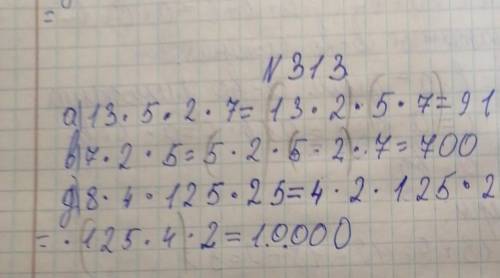 N 313
а) 13 · 5 · 2 · 7 = (13 · 2) · (5 · 7) = 91
в) 7 · 2 · 5 = (5 · 2 · (5 · 2) · 7 = 700
д) 8 · 4 · 125 · 25 = 4 · 2 · 125 · 2
= · (125 · 4) · 2 = 10.000